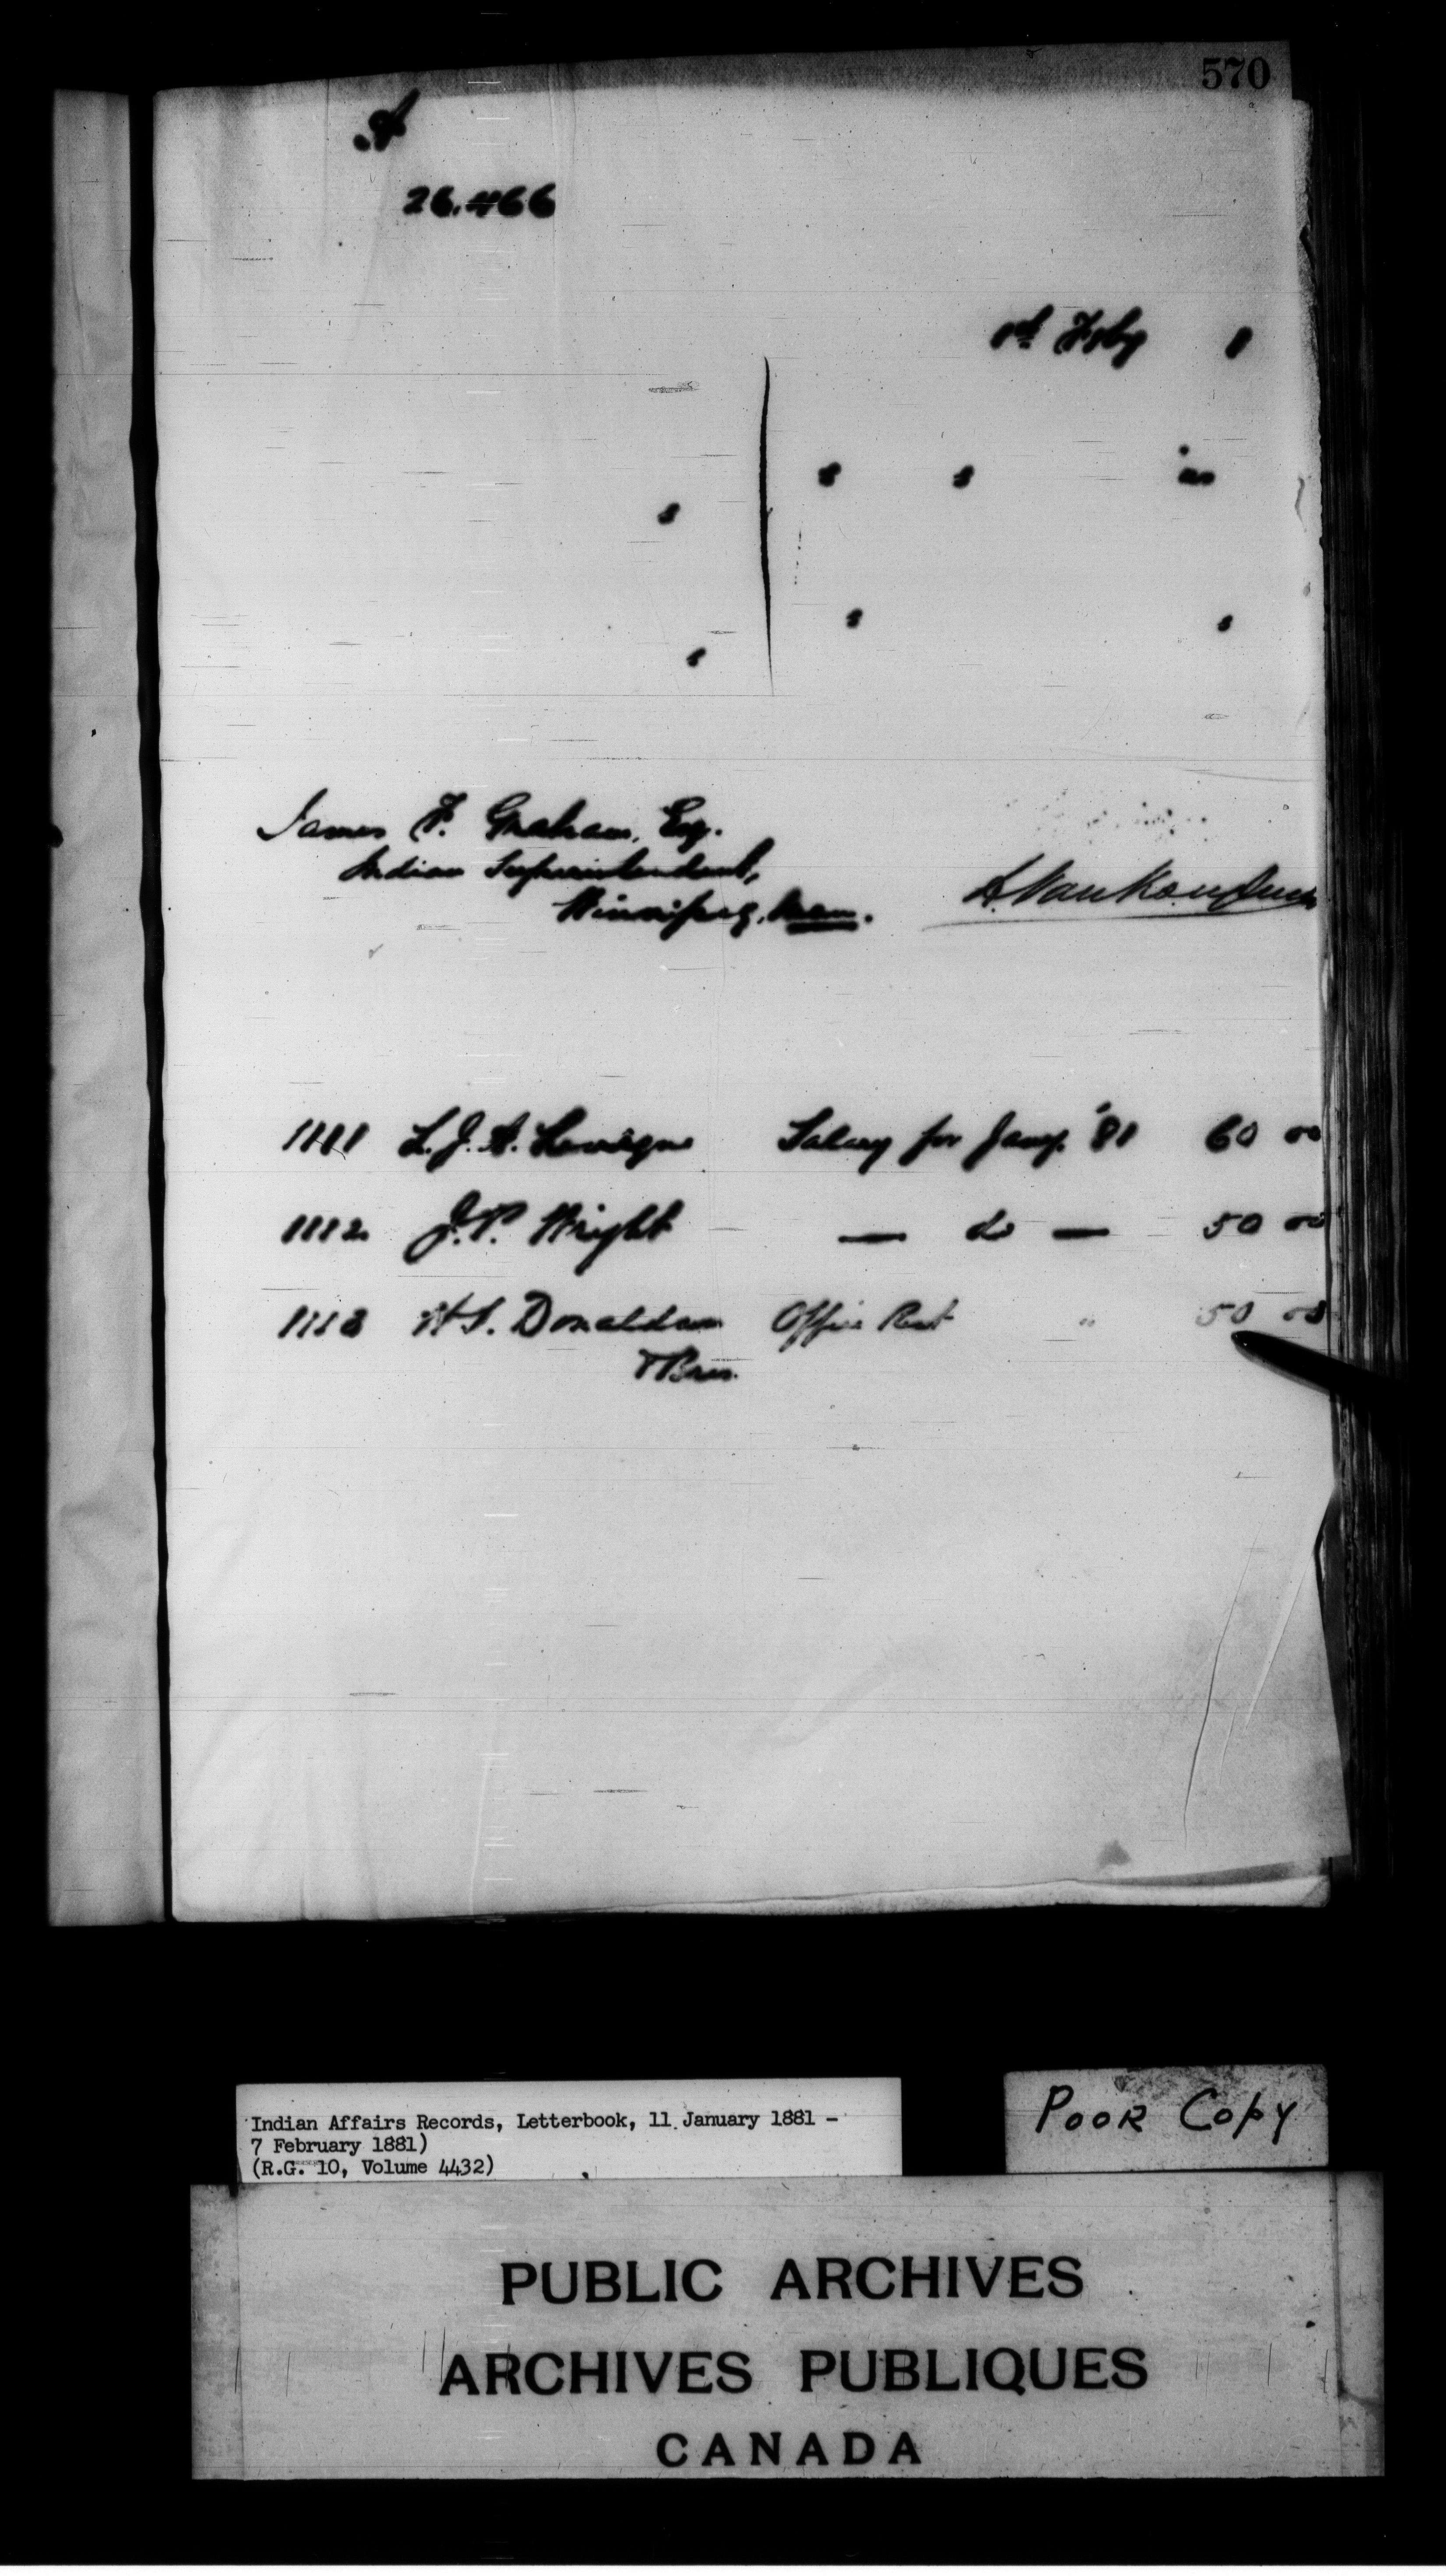 570
A
26,466
1st Feby 1
s s
s
s s
s
James F. Graham, Esq.
Indian Superintendent,
Winnipeg, Man.
L. VanKoughnet
1111 L. J. A. Leveigne Salary for Jany. '81 60 00
1112 J. P. Wright — do — 50 00
1113 H. S. Donaldson Office Rent " 50 00
& Bros.
Indian Affairs Records, Letterbook, 11 January 1881 -
7 February 1881)
(R.G. 10, Volume 4432)
POOR COPY
PUBLIC ARCHIVES
ARCHIVES PUBLIQUES
CANADA